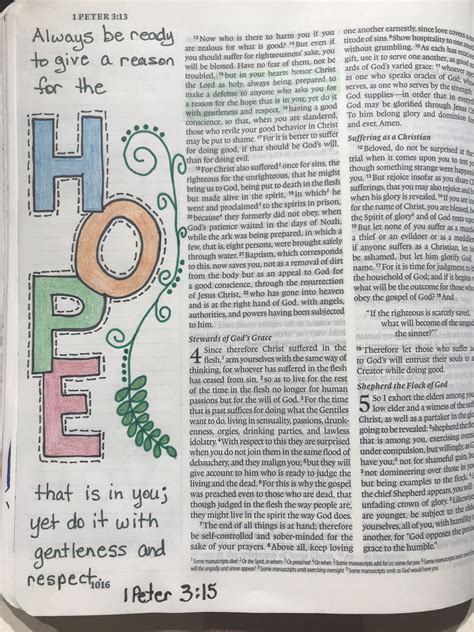 1 PETER 3:13
Always be ready
to give a reason
for the
HOPE
that is in you;
yet do it with
gentleness and
respect.
1016
1 Peter 3:15
13 Now who is there to harm you if you
are zealous for what is good? 14 But even if
you should suffer for righteousness' sake, you
will be blessed. Have no fear of them, nor be
troubled, 15 but in your hearts honor Christ
the Lord as holy, always being prepared to
make a defense to anyone who asks you for
a reason for the hope that is in you; yet do it
with gentleness and respect, 16 having a good
conscience, so that, when you are slandered,
those who revile your good behavior in Christ
may be put to shame. 17 For it is better to suffer
for doing good, if that should be God's will,
than for doing evil.
18 For Christ also suffered once for sins, the
righteous for the unrighteous, that he might
bring us to God, being put to death in the flesh
but made alive in the spirit, 19 in which he
went and proclaimed to the spirits in prison,
20 because they formerly did not obey, when
God's patience waited in the days of Noah,
while the ark was being prepared, in which a
few, that is, eight persons, were brought safely
through water. 21 Baptism, which corresponds
to this, now saves you, not as a removal of dirt
from the body but as an appeal to God for
a good conscience, through the resurrection
of Jesus Christ, 22 who has gone into heaven
and is at the right hand of God, with angels,
authorities, and powers having been subjected
to him.
Stewards of God's Grace
4 Since therefore Christ suffered in the
flesh, arm yourselves with the same way of
thinking, for whoever has suffered in the flesh
has ceased from sin, 2 so as to live for the rest
of the time in the flesh no longer for human
passions but for the will of God. 3 For the time
that is past suffices for doing what the Gentiles
want to do, living in sensuality, passions, drunk-
enness, orgies, drinking parties, and lawless
idolatry. 4 With respect to this they are surprised
when you do not join them in the same flood of
debauchery, and they malign you; 5 but they will
give account to him who is ready to judge the
living and the dead. 6 For this is why the gospel
was preached even to those who are dead, that
though judged in the flesh the way people are,
they might live in the spirit the way God does.
7 The end of all things is at hand; therefore
be self-controlled and sober-minded for the
sake of your prayers. 8 Above all, keep loving
one another earnestly, since love covers a
titude of sins. 9 Show hospitality to one
without grumbling. 10 As each has
gift, use it to serve one another, as good
ards of God's varied grace: 11 whoever
as one who speaks oracles of God;
serves, as one who serves by the strength
God supplies—in order that in
God may be glorified through Jesus
To him belong glory and dominion for
and ever. Amen.
Suffering as a Christian
12 Beloved, do not be surprised at the
trial when it comes upon you to test
though something strange were happening
you. 13 But rejoice insofar as you share
sufferings, that you may also rejoice and
when his glory is revealed. 14 If you are
for the name of Christ, you are blessed,
the Spirit of glory and of God rests upon
15 But let none of you suffer as a murderer
a thief or an evildoer or as a meddler
if anyone suffers as a Christian, let him
be ashamed, but let him glorify God
name. 17 For it is time for judgment to
the household of God; and if it begins
what will be the outcome for those who
obey the gospel of God? 18 And
"If the righteous is scarcely saved,
what will become of the ungodly
the sinner?"
19 Therefore let those who suffer
to God's will entrust their souls to a
Creator while doing good.
Shepherd the Flock of God
5 So I exhort the elders among you
low elder and a witness of the
Christ, as well as a partaker in the
going to be revealed: 2 shepherd the
that is among you, exercising
under compulsion, but willingly, as God
have you; not for shameful gain, but
not domineering over those in
but being examples to the flock. 4
the chief Shepherd appears, you will
unfading crown of glory. 5 Likewise,
are younger, be subject to the elders
yourselves, all of you, with humility
another, for "God opposes the proud
grace to the humble."